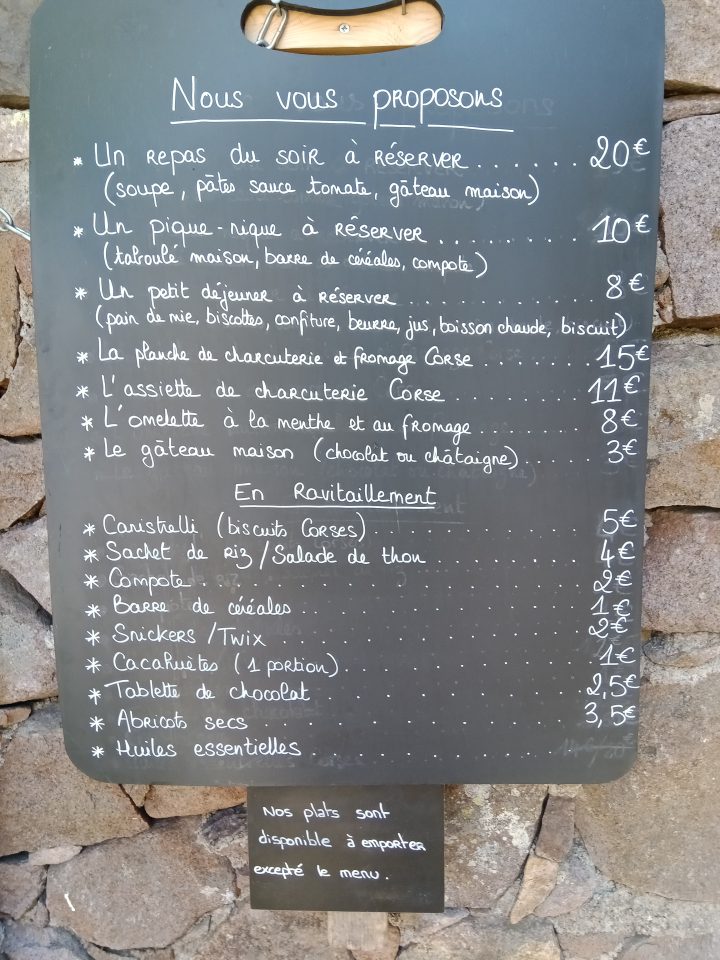 Nous vous proposons
* Un repas du soir à réserver...... 20€
(soupe, pâtes sauce tomate, gâteau maison)
* Un pique-nique à réserver........ 10€
(taboulé maison, barre de céréales, compote)
* Un petit déjeuner à réserver............ 8€
(pain de mie, biscottes, confiture, beurre, jus, boisson chaude, biscuit)
* La planche de charcuterie et fromage Corse....... 15€
* L'assiette de charcuterie Corse........ 11€
* L'omelette à la menthe et au fromage....... 8€
* Le gâteau maison (chocolat ou châtaigne)..... 3€
En Ravitaillement
* Canistrelli (biscuits Corses)............ 5€
* Sachet de riz/Salade de thon......... 4€
* Compote................. 2€
* Barre de céréales............. 1€
* Snickers/Twix.............. 2€
* Cacahuètes (1 portion)........... 1€
* Tablette de chocolat............ 2,5€
* Abricots secs............... 3,5€
* Huiles essentielles.............
Nos plats sont
disponible à emporter
excepté le menu.